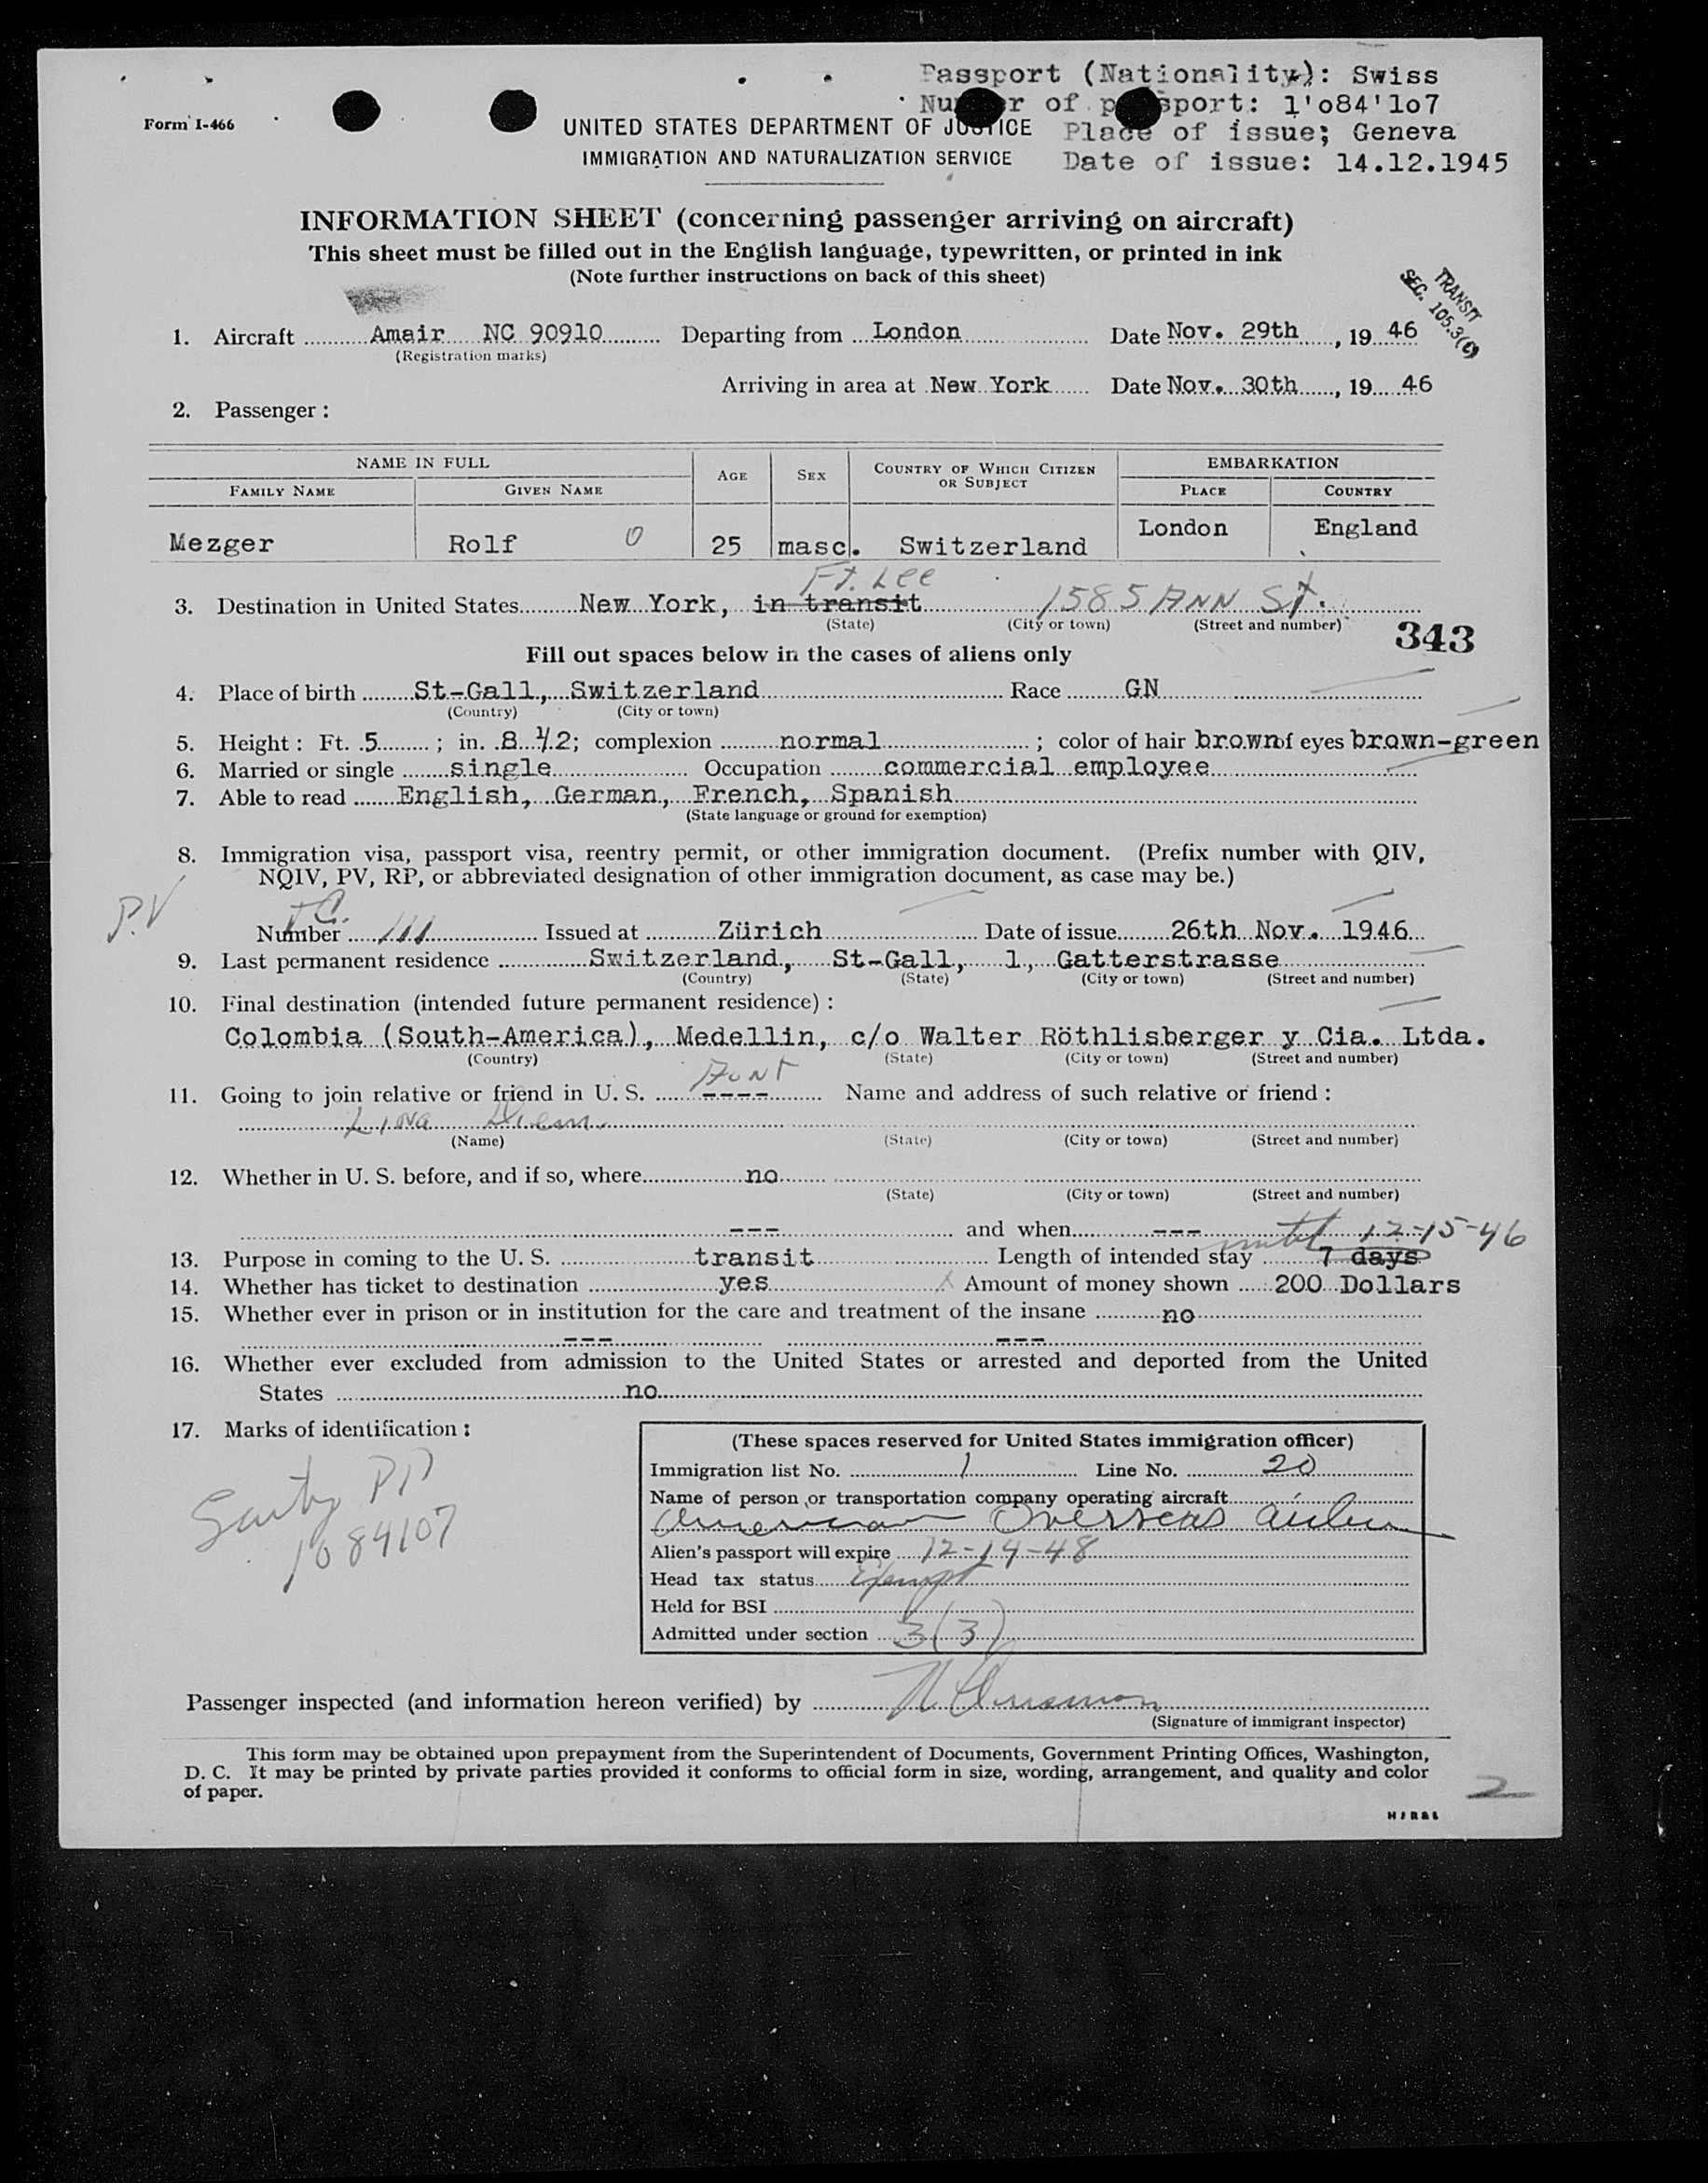 Passport (Nationality): Swiss
Number of passport: 1'o84'1o7
Place of issue; Geneva
Date of issue: 14.12.1945
Form I-466
UNITED STATES DEPARTMENT OF JUSTICE
IMMIGRATION AND NATURALIZATION SERVICE
INFORMATION SHEET (concerning passenger arriving on aircraft)
This sheet must be filled out in the English language, typewritten, or printed in ink
(Note further instructions on back of this sheet)
TRANSIT
SEC. 105.3(c)
1. Aircraft Amair NC 90910 Departing from London Date Nov. 29th, 19 46
(Registration marks)
Arriving in area at New York Date Nov. 30th, 19 46
2. Passenger:
NAME IN FULL AGE SEX COUNTRY OF WHICH CITIZEN OR SUBJECT EMBARKATION
FAMILY NAME GIVEN NAME PLACE COUNTRY
Mezger Rolf 0 25 masc. Switzerland London England
Ft. Lee
3. Destination in United States New York, in transit 1585 ANN St.
(State) (City or town) (Street and number)
343
Fill out spaces below in the cases of aliens only
4. Place of birth St-Gall, Switzerland Race GN
(Country) (City or town)
5. Height: Ft. 5 ; in. 8 1/2; complexion normal ; color of hair brown of eyes brown-green
6. Married or single single Occupation commercial employee
7. Able to read English, German, French, Spanish
(State language or ground for exemption)
8. Immigration visa, passport visa, reentry permit, or other immigration document. (Prefix number with QIV,
NQIV, PV, RP, or abbreviated designation of other immigration document, as case may be.)
P.V
Number 111 Issued at Zürich Date of issue 26th Nov. 1946
9. Last permanent residence Switzerland, St-Gall, 1, Gatterstrasse
(Country) (State) (City or town) (Street and number)
10. Final destination (intended future permanent residence):
Colombia (South-America), Medellin, c/o Walter Röthlisberger y Cia. Ltda.
(Country) (State) (City or town) (Street and number)
11. Going to join relative or friend in U. S. ---- Aunt Name and address of such relative or friend:
Lina Diem
(Name) (State) (City or town) (Street and number)
12. Whether in U. S. before, and if so, where no
(State) (City or town) (Street and number)
--- and when --- until 12-15-46
13. Purpose in coming to the U. S. transit Length of intended stay 7 days
14. Whether has ticket to destination yes Amount of money shown 200 Dollars
15. Whether ever in prison or in institution for the care and treatment of the insane no
--- ---
16. Whether ever excluded from admission to the United States or arrested and deported from the United
States no
17. Marks of identification:
PP
1084107
(These spaces reserved for United States immigration officer)
Immigration list No. 1 Line No. 20
Name of person or transportation company operating aircraft
American Overseas Airlines
Alien's passport will expire 12-14-48
Head tax status Exempt
Held for BSI
Admitted under section 3(3)
Passenger inspected (and information hereon verified) by
(Signature of immigrant inspector)
This form may be obtained upon prepayment from the Superintendent of Documents, Government Printing Offices, Washington,
D. C. It may be printed by private parties provided it conforms to official form in size, wording, arrangement, and quality and color
of paper.
2